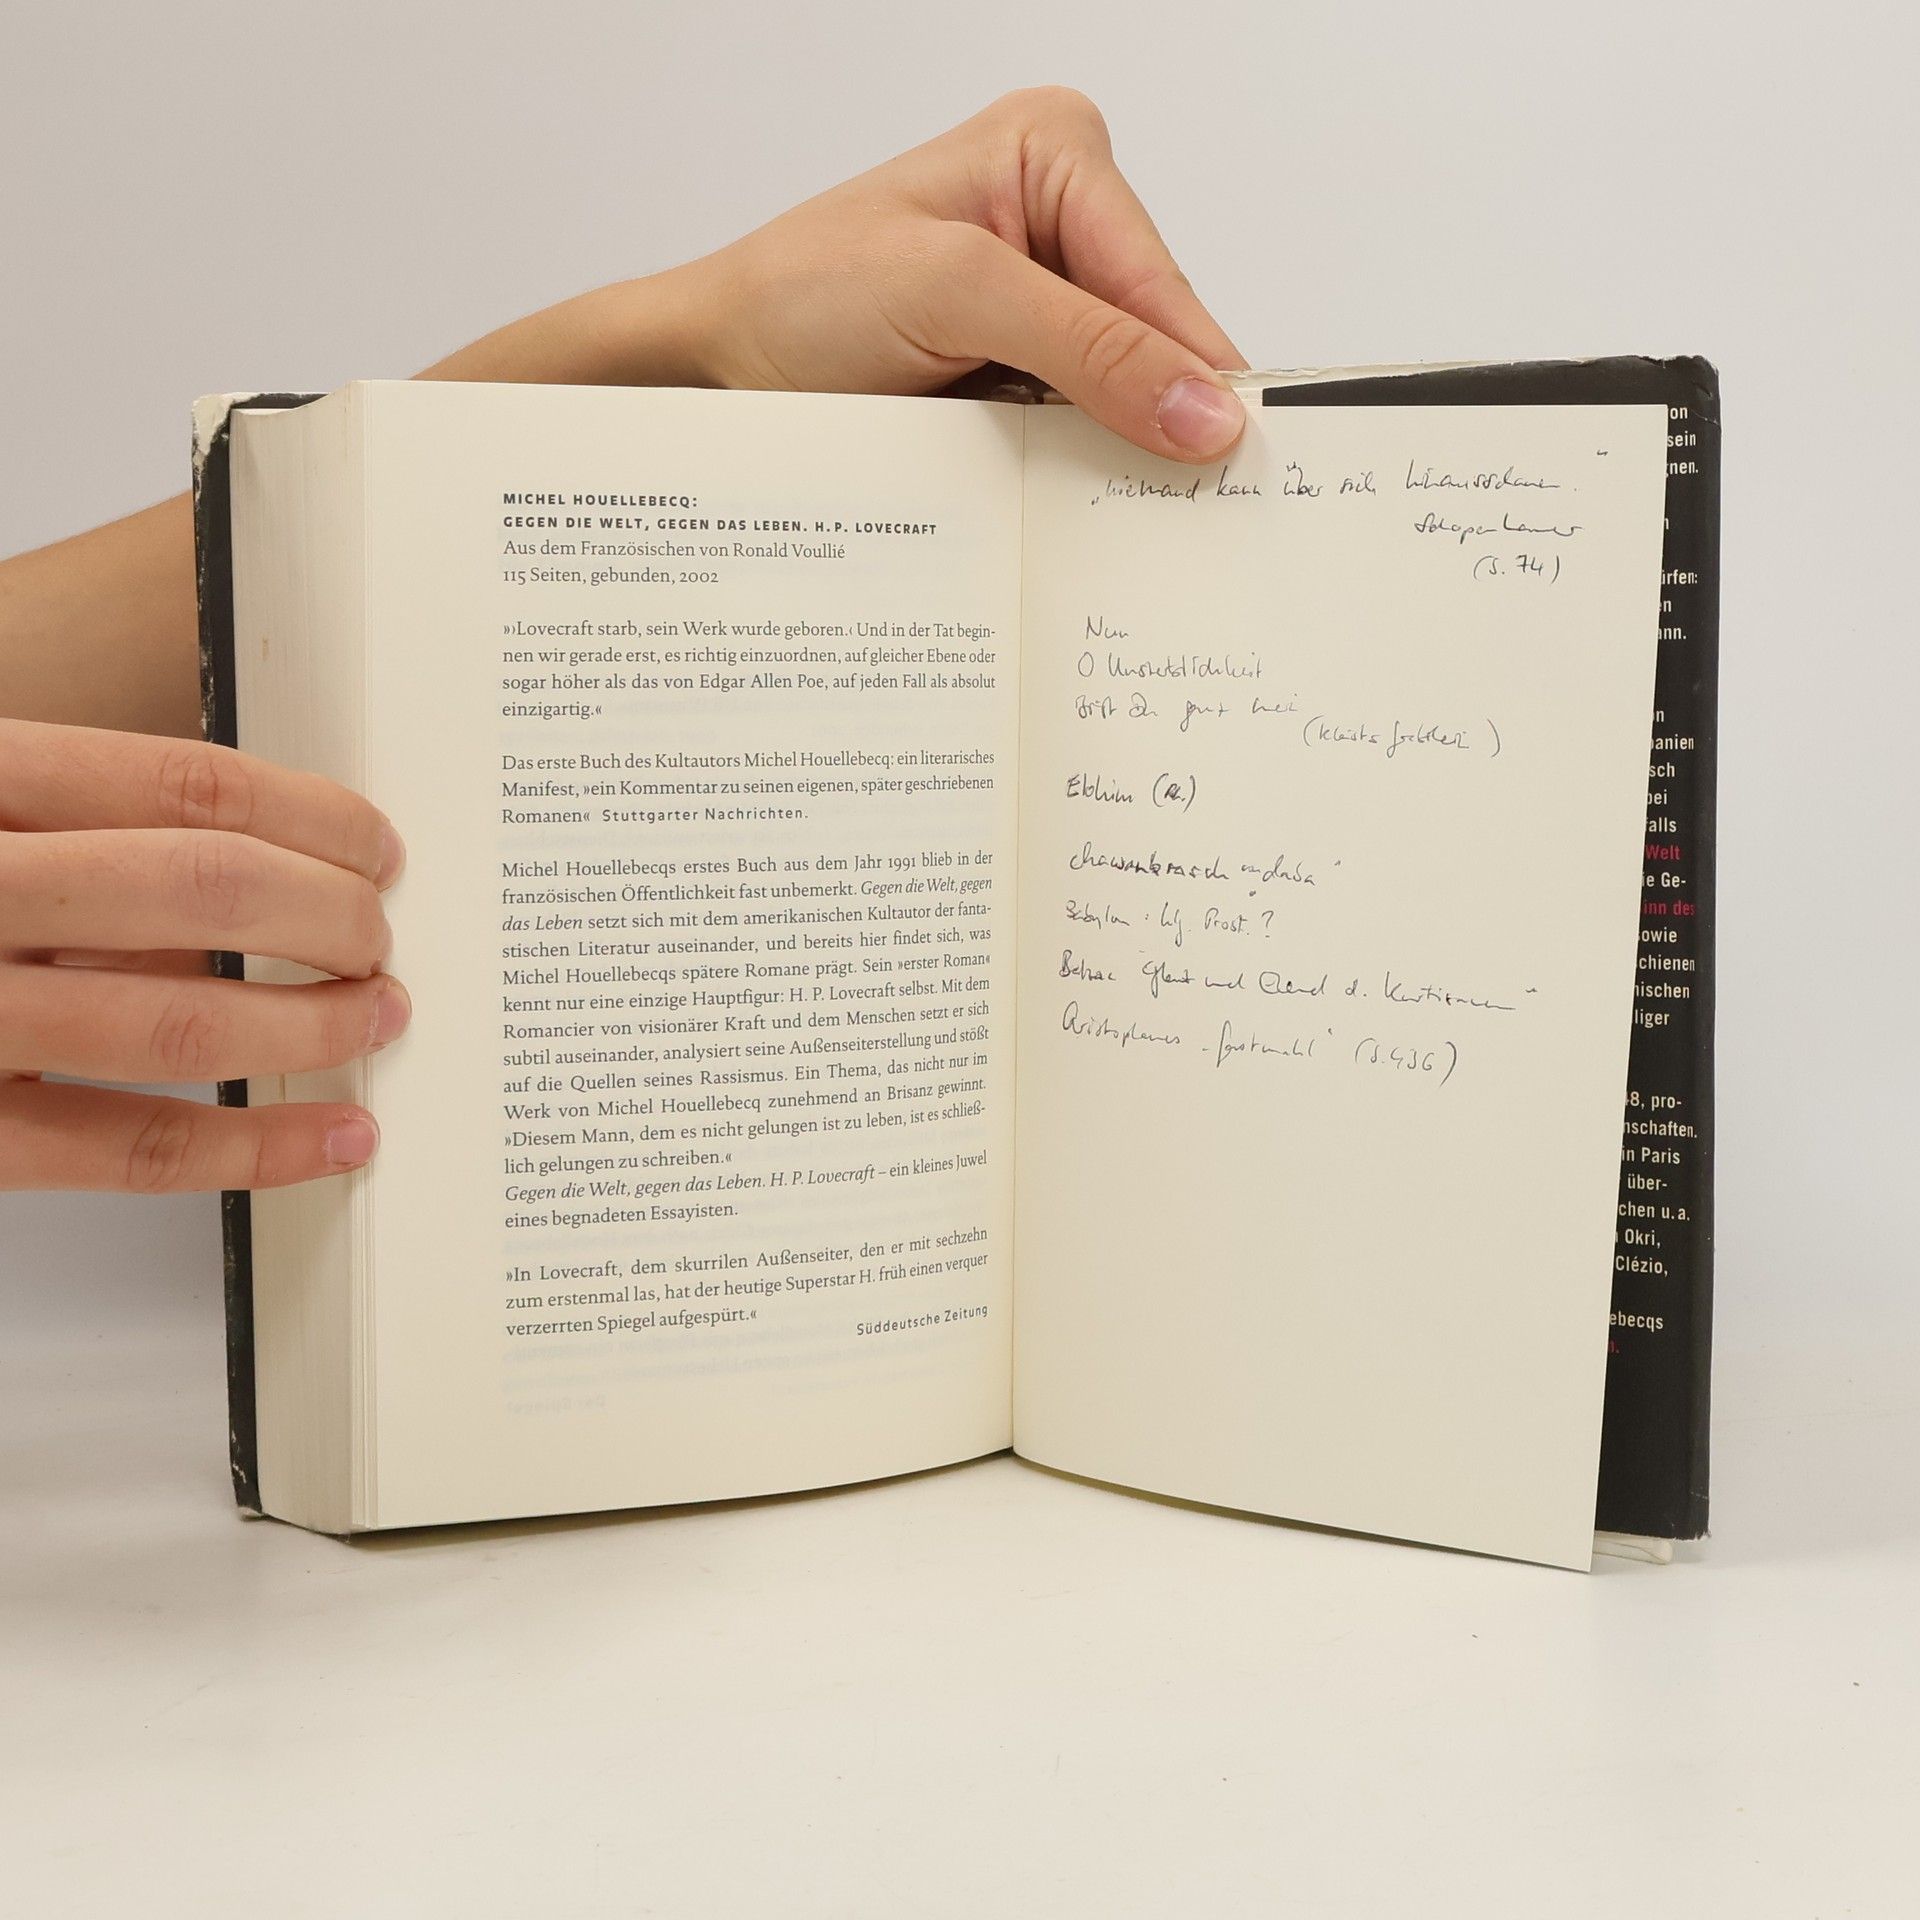 MICHEL HOUELLEBECQ:
GEGEN DIE WELT, GEGEN DAS LEBEN. H. P. LOVECRAFT
Aus dem Französischen von Ronald Voullié
115 Seiten, gebunden, 2002
»›Lovecraft starb, sein Werk wurde geboren.‹ Und in der Tat begin-
nen wir gerade erst, es richtig einzuordnen, auf gleicher Ebene oder
sogar höher als das von Edgar Allen Poe, auf jeden Fall als absolut
einzigartig.«
Das erste Buch des Kultautors Michel Houellebecq: ein literarisches
Manifest, »ein Kommentar zu seinen eigenen, später geschriebenen
Romanen« Stuttgarter Nachrichten.
Michel Houellebecqs erstes Buch aus dem Jahr 1991 blieb in der
französischen Öffentlichkeit fast unbemerkt. Gegen die Welt, gegen
das Leben setzt sich mit dem amerikanischen Kultautor der fanta-
stischen Literatur auseinander, und bereits hier findet sich, was
Michel Houellebecqs spätere Romane prägt. Sein »erster Roman«
kennt nur eine einzige Hauptfigur: H. P. Lovecraft selbst. Mit dem
Romancier von visionärer Kraft und dem Menschen setzt er sich
subtil auseinander, analysiert seine Außenseiterstellung und stößt
auf die Quellen seines Rassismus. Ein Thema, das nicht nur im
Werk von Michel Houellebecq zunehmend an Brisanz gewinnt.
»Diesem Mann, dem es nicht gelungen ist zu leben, ist es schließ-
lich gelungen zu schreiben.«
Gegen die Welt, gegen das Leben. H. P. Lovecraft – ein kleines Juwel
eines begnadeten Essayisten.
»In Lovecraft, dem skurrilen Außenseiter, den er mit sechzehn
zum erstenmal las, hat der heutige Superstar H. früh einen verquer
verzerrten Spiegel aufgespürt.«
Süddeutsche Zeitung
„Niemand kann über sich hinausschauen."
Schopenhauer
(S. 74)
Nun
O Unsterblichkeit
Bist Du ganz mein
(Kleists
Elohim
Babylon: Hlg. Prost.?
Balzac "Glanz und Elend d. Kurtisanen"
Aristophanes „Gastmahl" (S. 436)
on
sein
gnen.
n
irfen:
en
ann.
on
panien
sch
bei
falls
Welt
ie Ge-
inn des
sowie
chienen
nischen
liger
48, pro-
nschaften.
in Paris
über-
chen u.a.
Okri,
Clézio,
ebecqs
n.